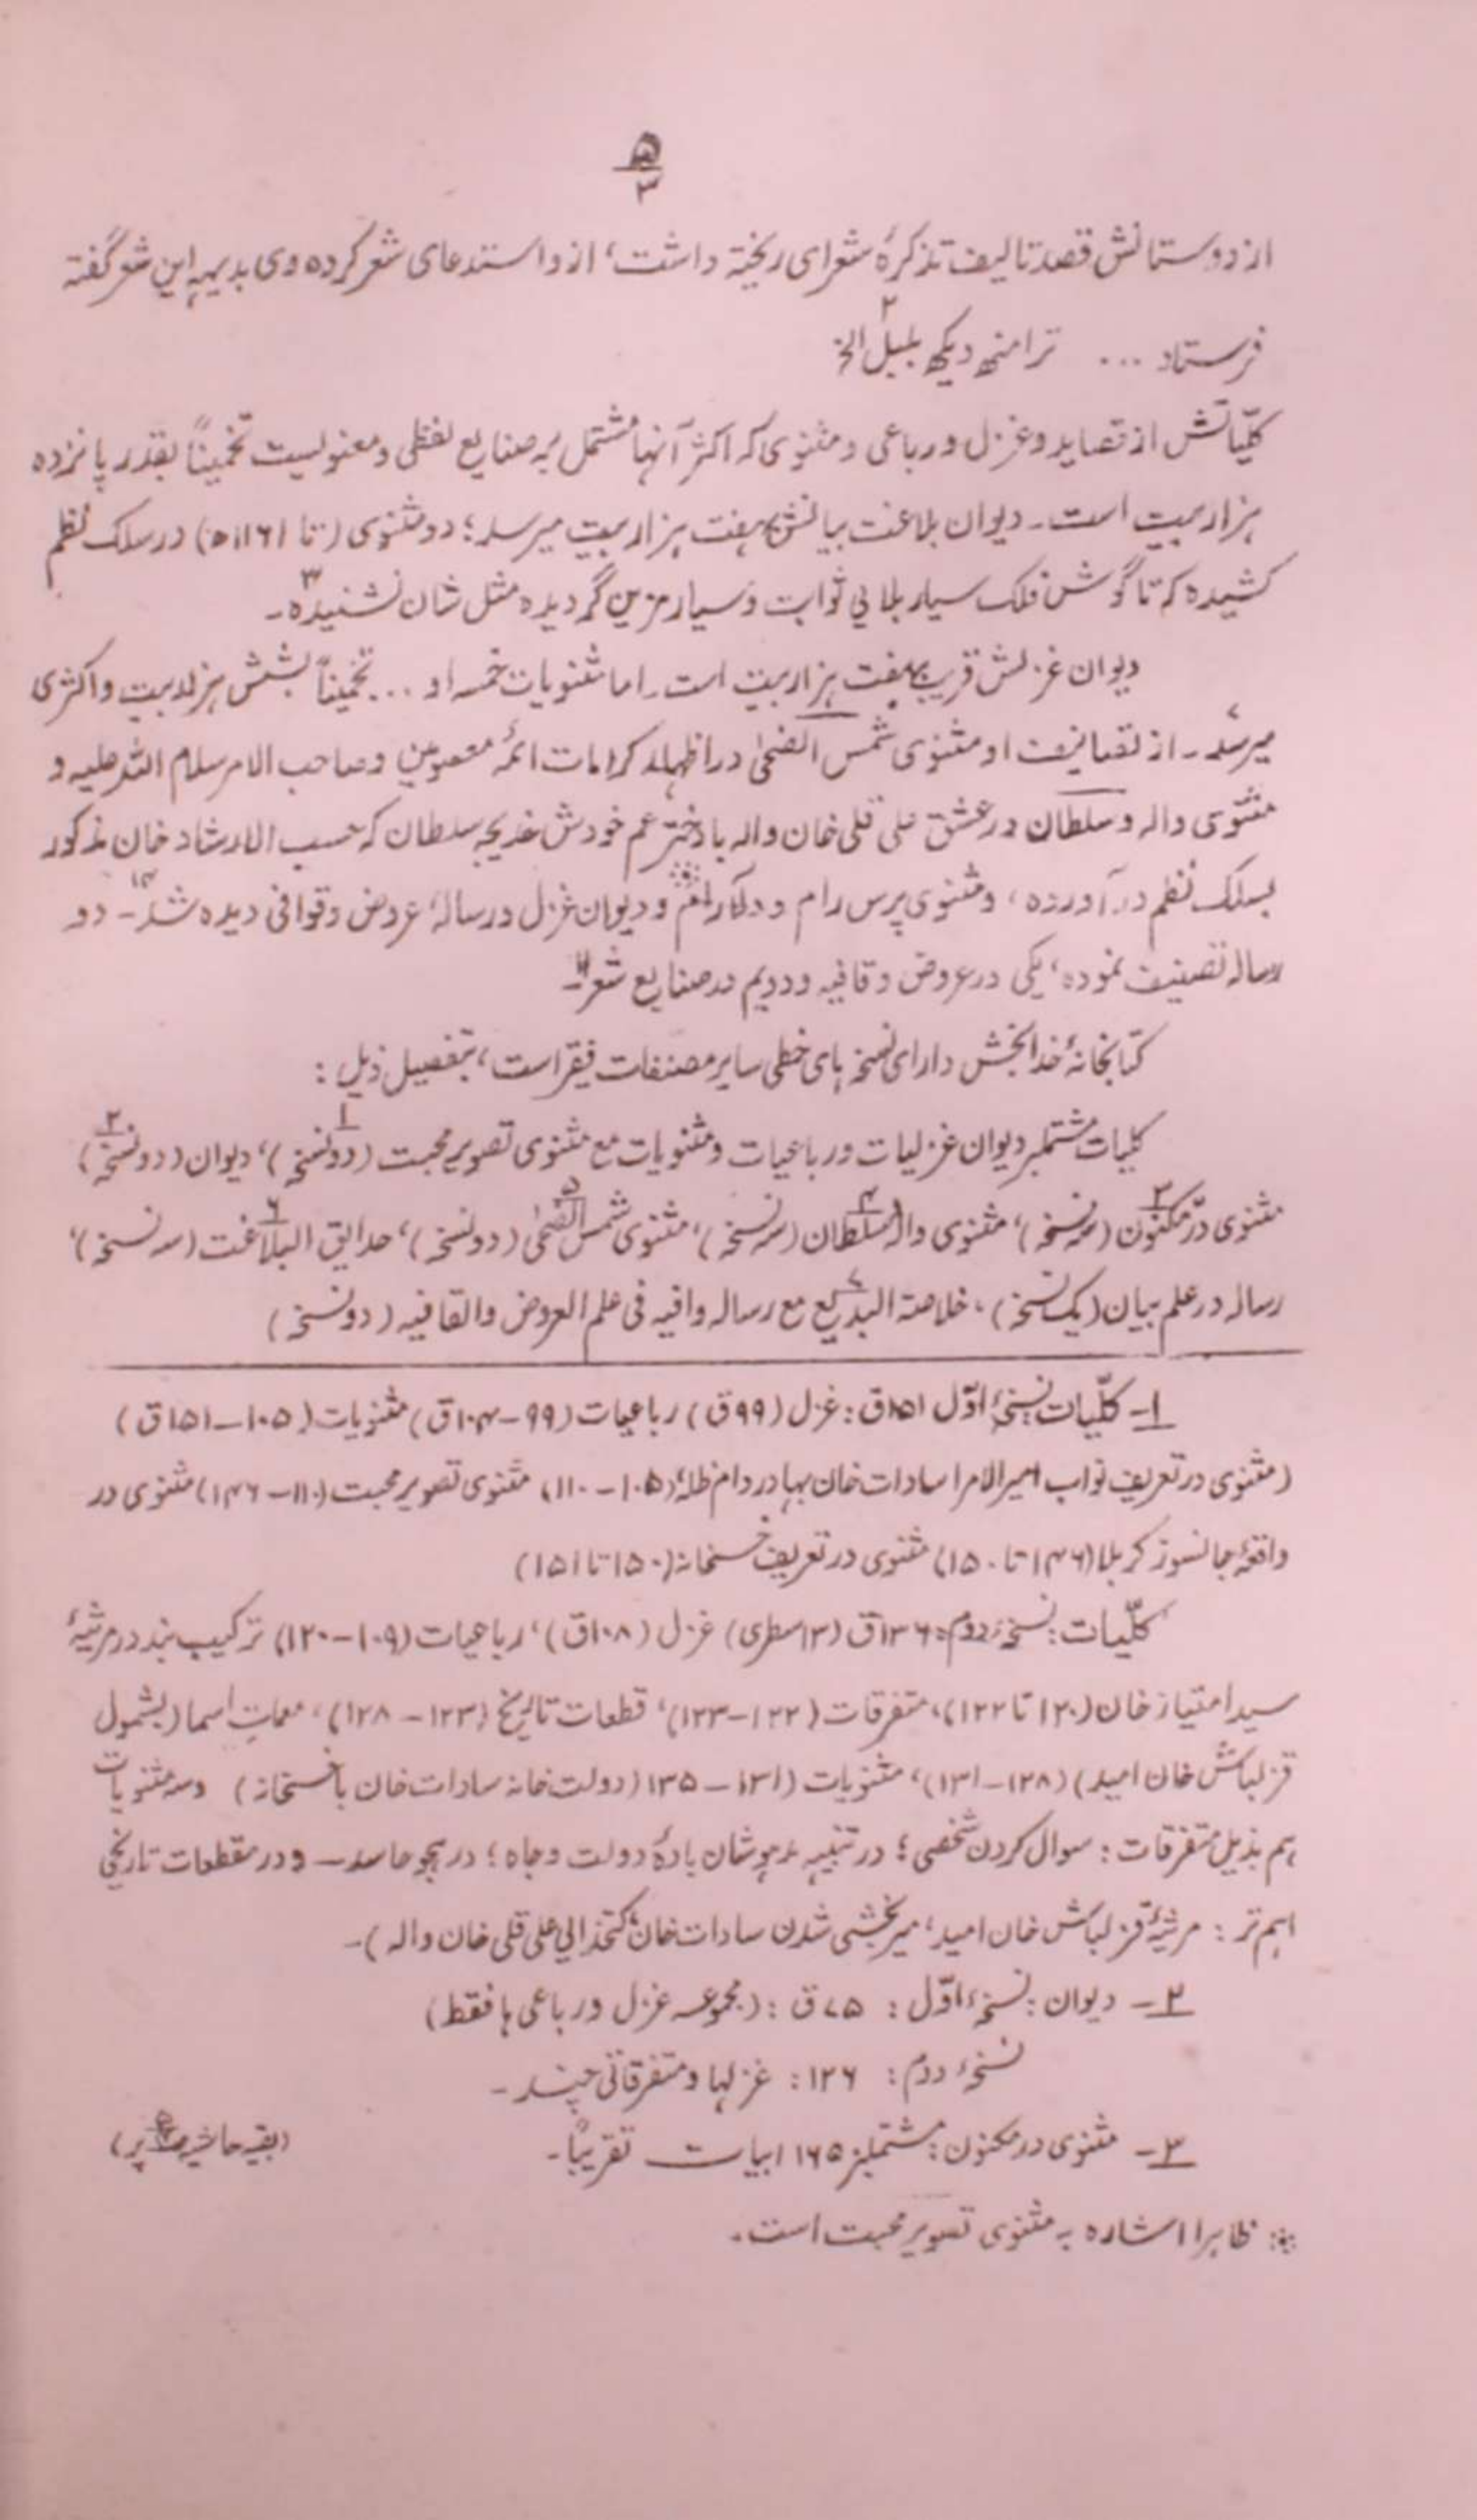 ۵
۳
از دوستانش قصد تالیف تذکرهٔ شعرای ریخته داشت، ازو استدعای شعر کرده وی بدیہہ این شعر گفته
فرستاد ... ترا منھ دیکھ بلبل الخ ۲
کلّیاتش از قصاید و غزل و رباعی و مثنوی کہ اکثر آنہا مشتمل بہ صنایع لفظی و معنویست تخمیناً بقدر پانزده
ہزار بیت است۔ دیوان بلاغت بیانش بہفت ہزار بیت میرسد؛ دو مثنوی (تا ۱۱۶۱ھ) در سلک نظم
کشیده کہ تا گوش فلک سیار بلآلی ثوابت و سیار مزین گردیده مثل شان نشنیده ۳۔
دیوان غزلش قریب بہفت ہزار بیت است۔ اما مثنویات خمسہ او ... تخمیناً بشش ہزار بیت و اکثری
میرسد۔ از تصانیف او مثنوی شمس الضحیٰ در اظہار کرامات ائمہٴ معصومین و صاحب الامر سلام اللہ علیہ و
مثنوی والہ و سلطان در عشق علی قلی خان والہ با دختر عم خودش خدیجہ سلطان کہ حسب الارشاد خان مذکور
بسلک نظم در آورده، و مثنوی پرس رام و دلآرام و دیوان غزل و رسالہٴ عروض و قوافی دیده شد۔ دو
رسالہ تصنیف نموده، یکی در عروض و قافیہ و دویم در صنایع شعر۔
کتابخانہٴ خدابخش دارای نسخہ ہای خطی سایر مصنفات فقیر است، بتفصیل ذیل :
کلیات مشتملبر دیوان غزلیات و رباعیات و مثنویات مع مثنوی تصویر محبت (دو نسخہ) ۱، دیوان (دو نسخہ) ۲
مثنوی درّ مکنون ۳ (سہ نسخہ)، مثنوی والہ سلطان ۴ (سہ نسخہ)، مثنوی شمس الضحیٰ ۵ (دو نسخہ)، حدایق البلاغت ۶ (سہ نسخہ)،
رسالہ در علم بیان (یک نسخہ)، خلاصۃ البدیع ۷ مع رسالہ وافیہ فی علم العروض والقافیہ (دو نسخہ)
۱۔ کلّیات نسخہٴ اوّل ۱۵۱ق : غزل (۹۹ق) رباعیات (۹۹-۱۰۴ق) مثنویات (۱۰۵-۱۵۱ق)
(مثنوی در تعریف نواب امیر الامرا سادات خان بہادر دام ظلہ، (۱۰۵-۱۱۰)، مثنوی تصویر محبت (۱۱۰-۱۴۶) مثنوی در
واقعہٴ جانسوز کربلا (۱۴۶ تا ۱۵۰)، مثنوی در تعریف خسخانہ (۱۵۰ تا ۱۵۱)
کلّیات : نسخہٴ دوم : ۱۳۶ق (۱۳سطری) غزل (۱۰۸ق)، رباعیات (۱۰۹-۱۲۰)، ترکیب بند در مرثیہٴ
سید امتیاز خان (۱۲۰ تا ۱۲۲)، متفرقات (۱۲۲-۱۲۳)، قطعات تاریخ (۱۲۳-۱۲۸)، معمات اسما (بشمول
قزلباش خان امید) (۱۲۸-۱۳۱)، مثنویات (۱۳۱-۱۳۵ (دولت خانہ سادات خان با خسخانہ) و سہ مثنویات
ہم بذیل متفرقات : سوال کردن شخصی؛ در تنبیہ مدہوشان بادهٔ دولت و جاه؛ در ہجو حاسد۔ و در قطعات تاریخی
اہم تر : مرثیہٴ قزلباش خان امید، میر بخشی شدن سادات خان، کتخدایی علی قلی خان والہ)۔
۲۔ دیوان : نسخہٴ اوّل : ۷۵ق : (مجموعہ غزل و رباعی ہا فقط)
نسخہٴ دوم : ۱۲۶ : غزلہا و متفرقاتی چند۔
۳۔ مثنوی در مکنون : مشتملبر ۱۶۵ ابیات تقریباً۔ (بقیہ حاشیہ پر)
؞ ظاہرا اشاره بہ مثنوی تصویر محبت است۔